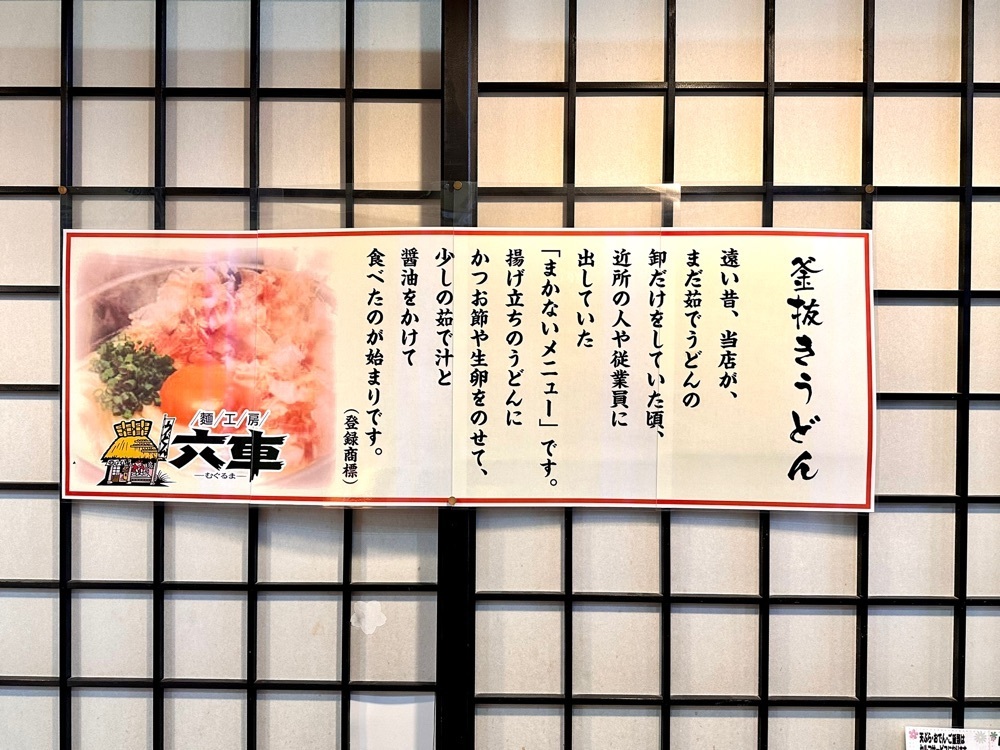 釜抜きうどん
遠い昔、当店が、
まだ茹でうどんの
卸だけをしていた頃、
近所の人や従業員に
出していた
「まかないメニュー」です。
揚げ立ちのうどんに
かつお節や生卵をのせて、
少しの茹で汁と
醤油をかけて
食べたのが始まりです。
(登録商標)
麺工房
六車
むぐるま
うどん
天ぷら・おでん・ご飯類は